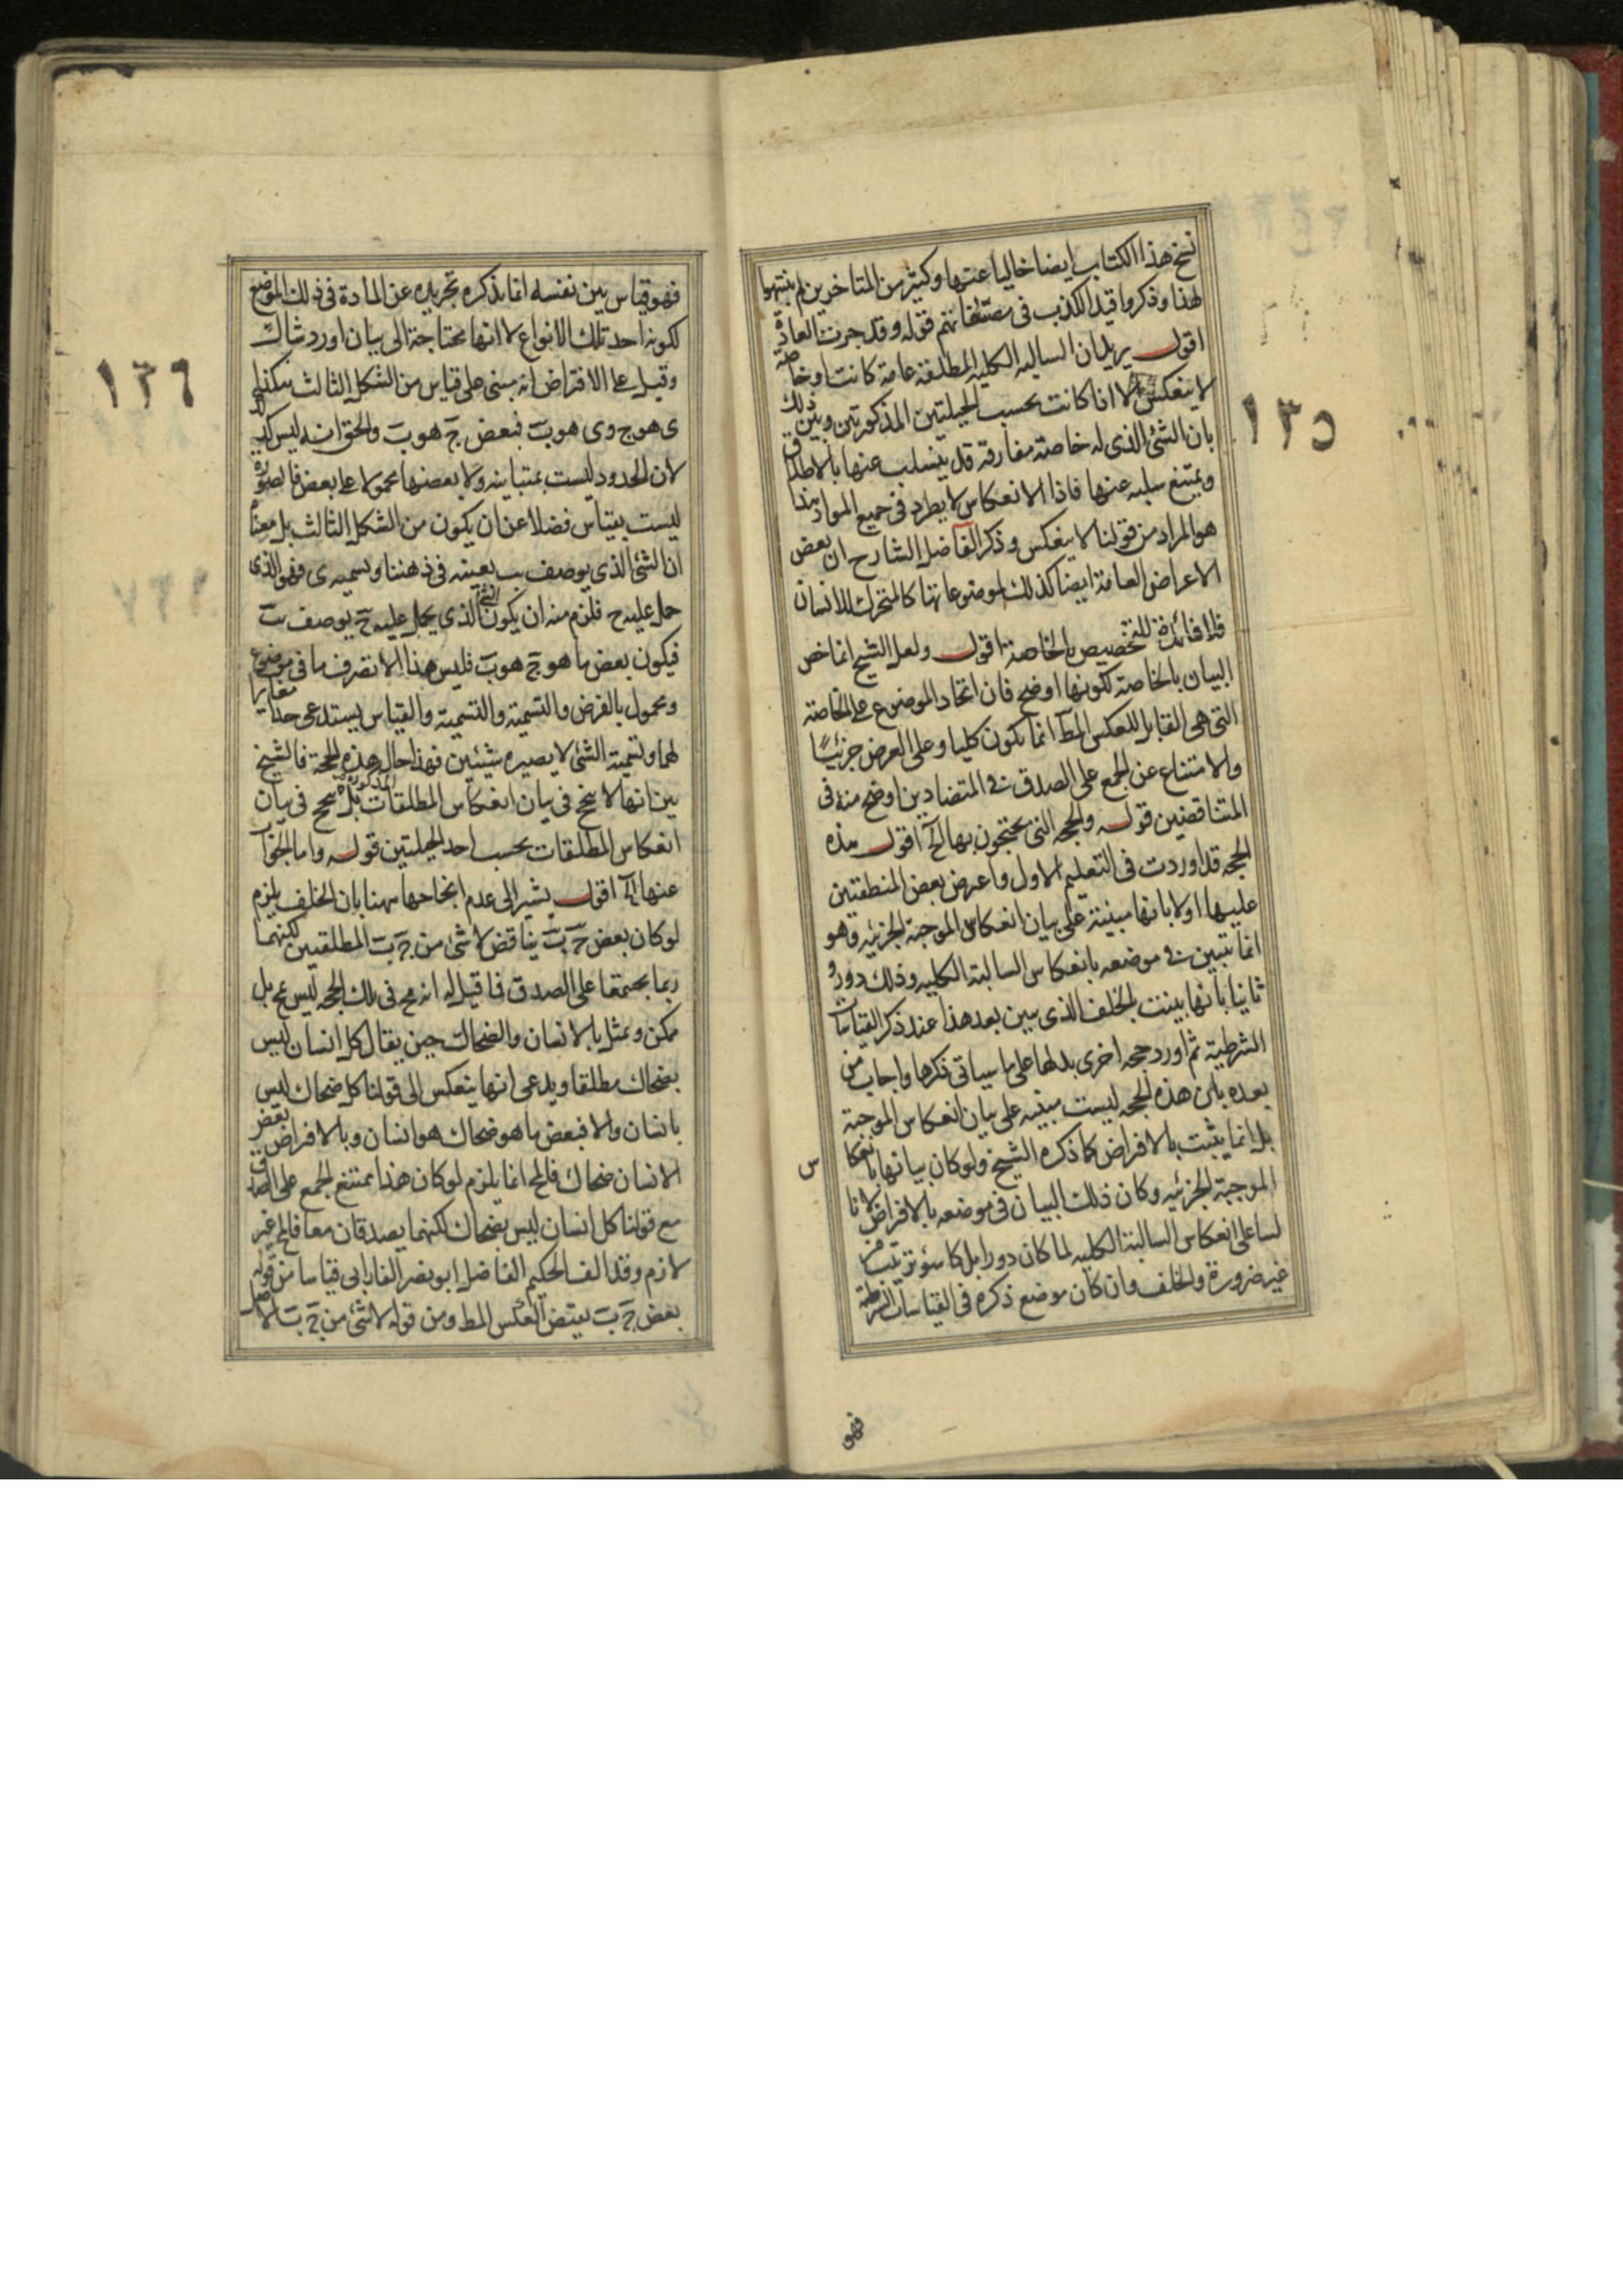 نسخ هذا الكتاب ايضا خاليا عنها وكثير من المتاخرين لم ينتبهوا
لهذا وذكروا قيد الكذب في مصنفاتهم قوله وقد جرت العادة
اقول يريد ان السالبه الكليه المطلقة عامة كانت او خاصة
لا ينعكس الا اذا كانت بحسب الحيلتين المذكورتين وبين ذلك
بان الشئ الذى له خاصة مفارقة قد ينسلب عنها بالاطلاق
ويمتنع سلبه عنها فاذا الانعكاس لا يطرد في جميع المواد هذا
هو المراد من قولنا لا ينعكس وذكر الفاضل الشارح ان بعض
الاعراض العامة ايضا كذلك لموضوعاتها كالمتحرك للانسان
فلا فائدة للتخصيص بالخاصة اقول ولعل الشيخ انما خص
البيان بالخاصة لكونها اوضح فان اتحاد الموضوع على الخاصة
التى هى القابل للعكس المط انما يكون كليا وعلى العرض جزئيا
والامتناع عن الجمع على الصدق في المتضادين اوضح منه فى
المتناقضين قوله والحجه التى يحتجون بها الخ اقول هذه
الحجه قد اوردت فى التعليم الاول واعرض بعض المنطقيين
عليها اولا بانها مبينة على بيان انعكاس الموجبة الجزئيه وهو
انما يتبين فى موضعه بانعكاس السالبة الكليه وذلك دور و
ثانيا بانها بينت بالخلف الذى يبين بعد هذا عند ذكر القياسات
الشرطية ثم اورد حجه اخرى بدلها على ما سياتى ذكرها واجاب من
بعده بان هذه الحجه ليست مبنيه على بيان انعكاس الموجبة
بل انما يثبت بالافراض كما ذكره الشيخ ولو كان بيانها بانعكا
س
الموجبة الجزئيه وكان ذلك البيان فى موضعه بالافراض لا بنا
على انعكاس السالبة الكليه لما كان دورا بل كا سوء ترتيب من
غير ضرورة والخلف وان كان موضع ذكره فى القياسات الشرطية
فهو
١٣٥
فهو قياس بين نفسه انما يذكره تجريده عن المادة فى ذلك الموضع
لكونه احد تلك الانواع لا انها محتاجة الى بيان اورد شاك
وقيل على الافتراض انه مبنى على قياس من الشكل الثالث هكذا
ى هو ج وى هو ب فبعض ج هو ب والحق انه ليس كذلك
لان الحدود ليست بمتباينه ولا بعضها محمولا على بعض فالصورة
ليست بقياس فضلا عن ان يكون من الشكل الثالث بل معناه
ان الشئ الذي يوصف ب بعينه فى ذهننا ويسميه ى فهو الذى
حمل عليه ج فلزم منه ان يكون الشئ الذي يحمل عليه ج يوصف ب
فيكون بعض ما هو ج هو ب فليس هذا الا تصرف ما فى موضوع
ومحمول بالفرض والتسمية والقياس يستدعى حدا مغايرا
لهما وتسمية الشئ لا يصيره شيئين فهذا حال هذه الحجة فالشيخ
بين انها لا ينتج فى بيان انعكاس المطلقات المذكورة بل ينتج فى بيان
انعكاس المطلقات بحسب احد الحيلتين قوله واما الجواب
عنها الخ اقول يشير الى عدم انجاحها ههنا بان الخلف يلزم
لو كان بعض ج ب يناقض لا شئ من ج ب المطلقين لكنهما
ربما يجتمعا على الصدق فاقيل له انه مح فى تلك الحجه ليس مح بل
ممكن ويمثل بالانسان والضحاك حين يقال كل انسان ليس
بضحاك مطلقا ويدعى انها ينعكس الى قولنا كل ضحاك ليس
بانسان والا فبعض ما هو ضحاك هو انسان وبالافراض بعض
الانسان ضحاك فالمح انما يلزم لو كان هذا يمتنع الجمع على الصدق
مع قولنا كل انسان ليس بضحاك لكنهما يصدقان معا فالمح غير
لازم وقد الف الحكيم الفاضل ابو نصر الفارابى قياسا من قوله
بعض ج ب نقيض العكس المط ومن قوله لا شئ من ج ب الاصل
١٣٦